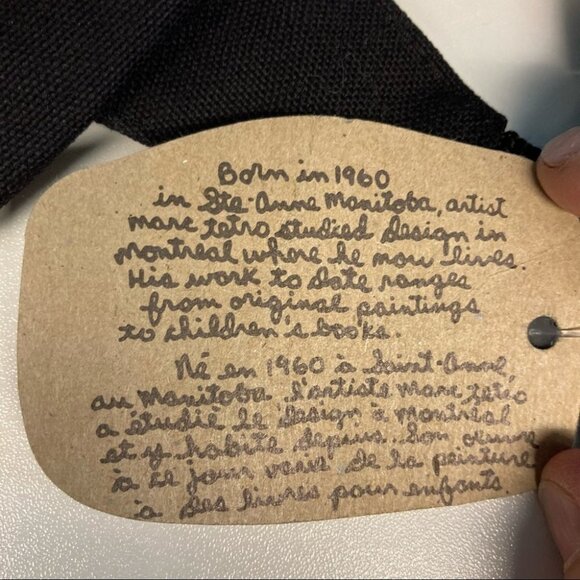 Born in 1960
in Ste-Anne Manitoba, artist
marc tetro studied design in
montreal where he now lives.
His work to date ranges
from original paintings
to children's books.
Né en 1960 à Saint-Anne,
au Manitoba l'artiste marc tetro
a étudié le design à montréal
et y habite depuis. Son oeuvre
à ce jour varie de la peinture
à des livres pour enfants.